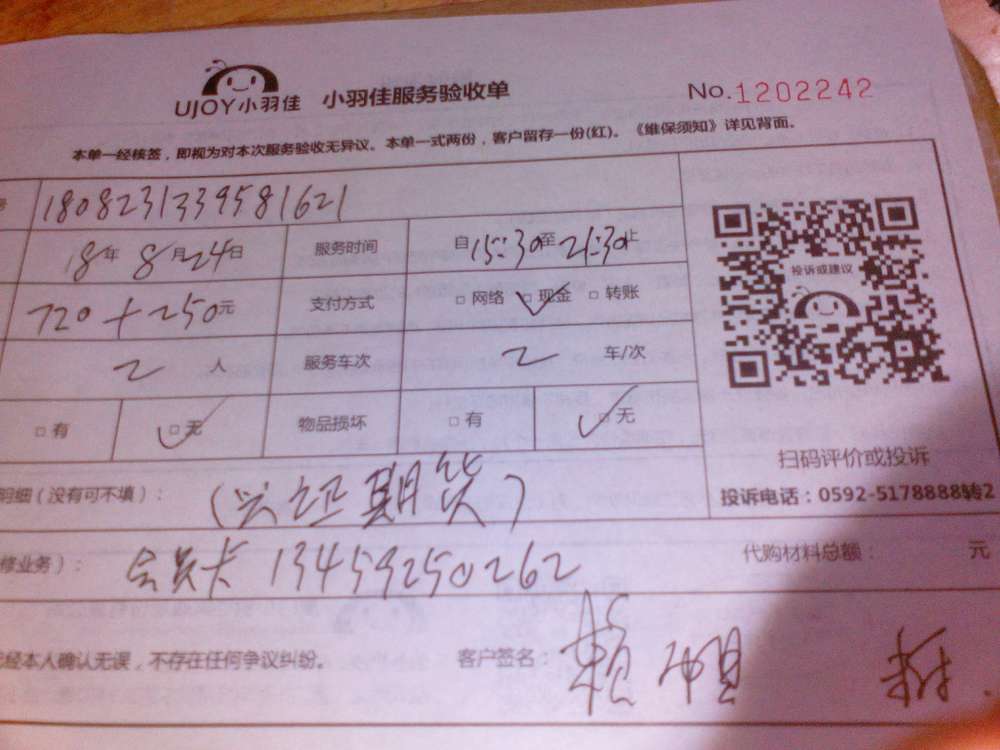 UJOY小羽佳 小羽佳服务验收单 No.1202242
本单一经核签，即视为对本次服务验收无异议。本单一式两份，客户留存一份(红)。《维保须知》详见背面。
号 1808231339581621
18年8月24日 服务时间 自15:30至21:30止
投诉或建议
720+250元 支付方式 □网络 □现金 □转账
2人 服务车次 2车/次
□有 □无 物品损坏 □有 □无
扫码评价或投诉
投诉电话：0592-5178888转2
明细（没有可不填）： （兴证期货）
修业务）： 会员卡 13459250262 代购材料总额： 元
经本人确认无误，不存在任何争议纠纷。 客户签名：